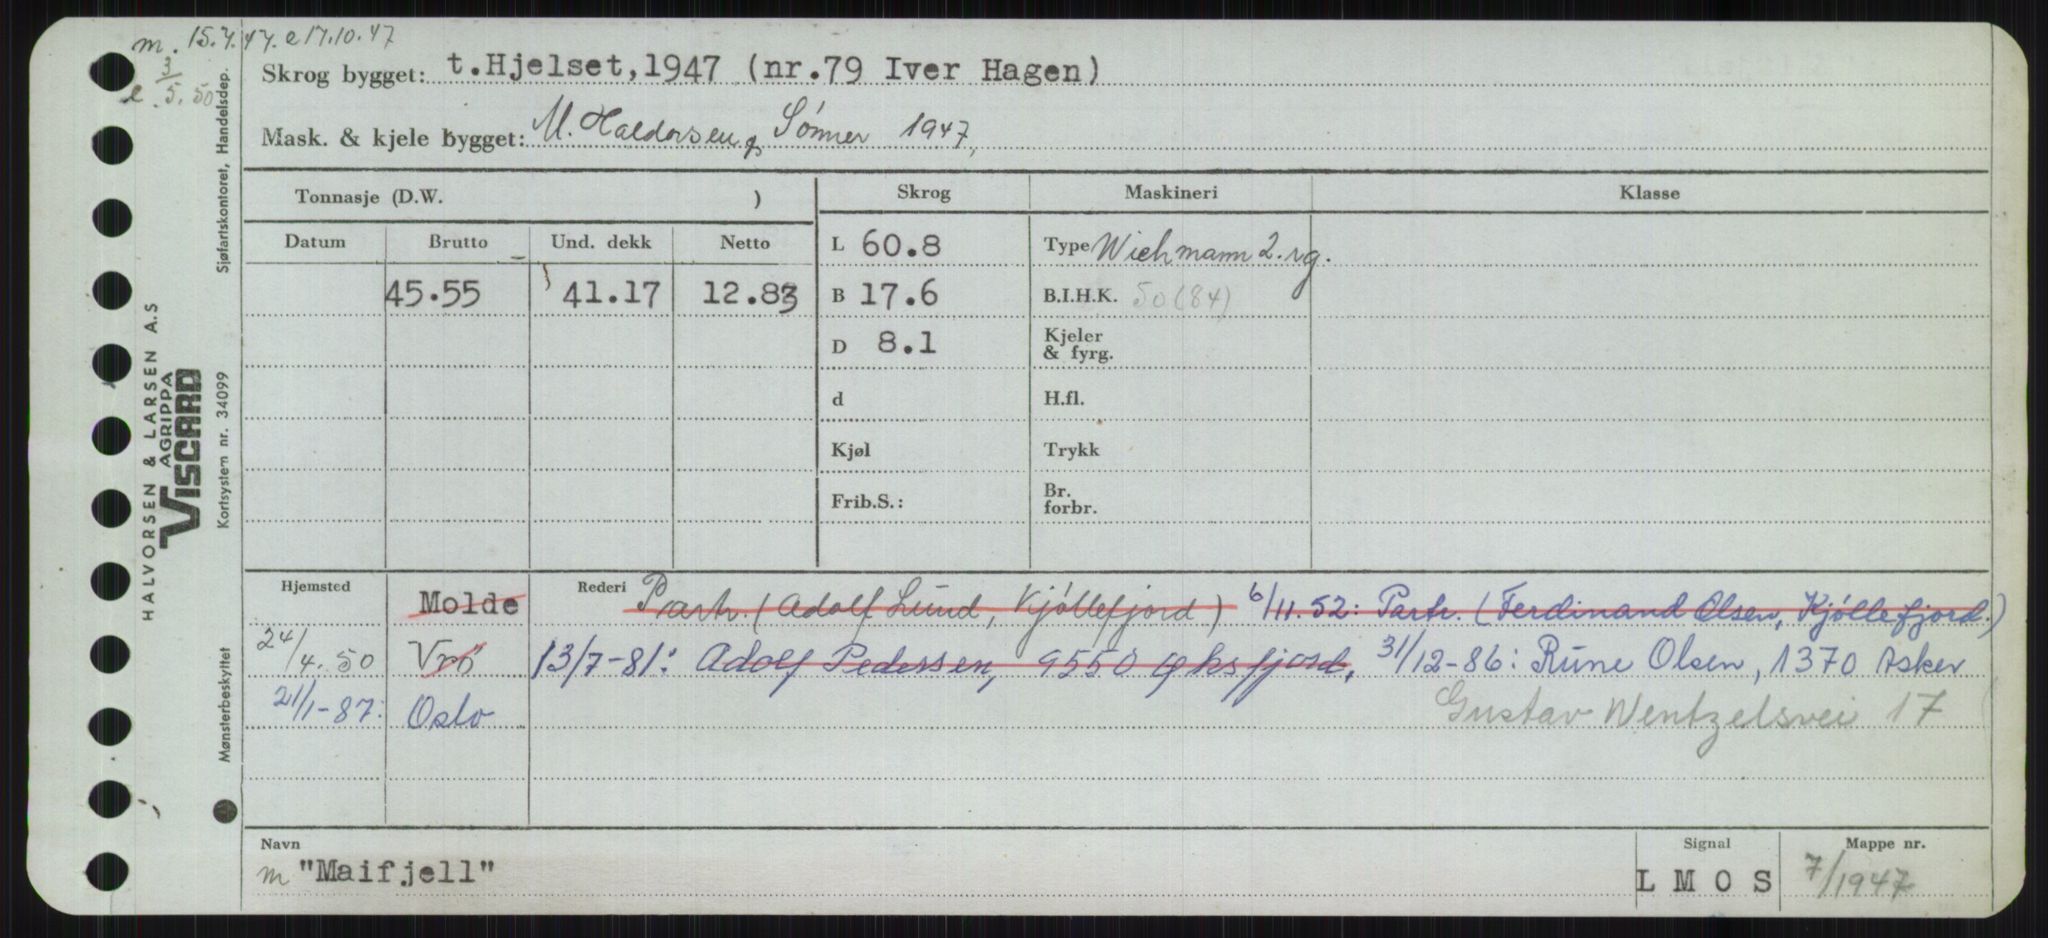 m. 15.7.47. e 17.10.47
e. 3/5.50
Skrog bygget: t.Hjelset,1947 (nr.79 Iver Hagen)
Mask. & kjele bygget: M. Haldorsen & Sønner 1947,
Tonnasje (D.W. )
Skrog
Maskineri
Klasse
Datum Brutto Und. dekk Netto
45.55 41.17 12.83
L 60.8
B 17.6
D 8.1
d
Kjøl
Frib.S.:
Type Wichmann 2. rg.
B.I.H.K. 50 (84)
Kjeler
& fyrg.
H.fl.
Trykk
Br.
forbr.
Hjemsted Molde
24/4.50 Vrö
21/1-87: Oslo
Rederi Partr. (Adolf Lund, Kjøllefjord) 6/11.52: Partr. (Ferdinand Olsen, Kjøllefjord.)
13/7-81: Adolf Pedersen, 9550 Øksfjord. 31/12-86: Rune Olsen, 1370 Asker
Gustav Wentzelsvei 17
Navn
m "Maifjell"
Signal
L M O S
Mappe nr.
7/1947
HALVORSEN & LARSEN A.S
AGRIPPA
VISCARD
Mønsterbeskyttet Kortsystem nr. 34099 Sjøfartskontoret, Handelsdep.